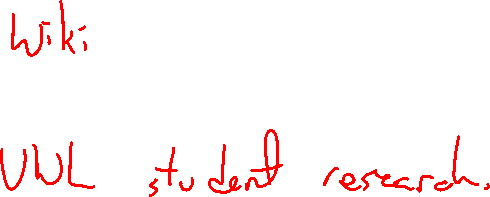 Wiki
UWL student research.